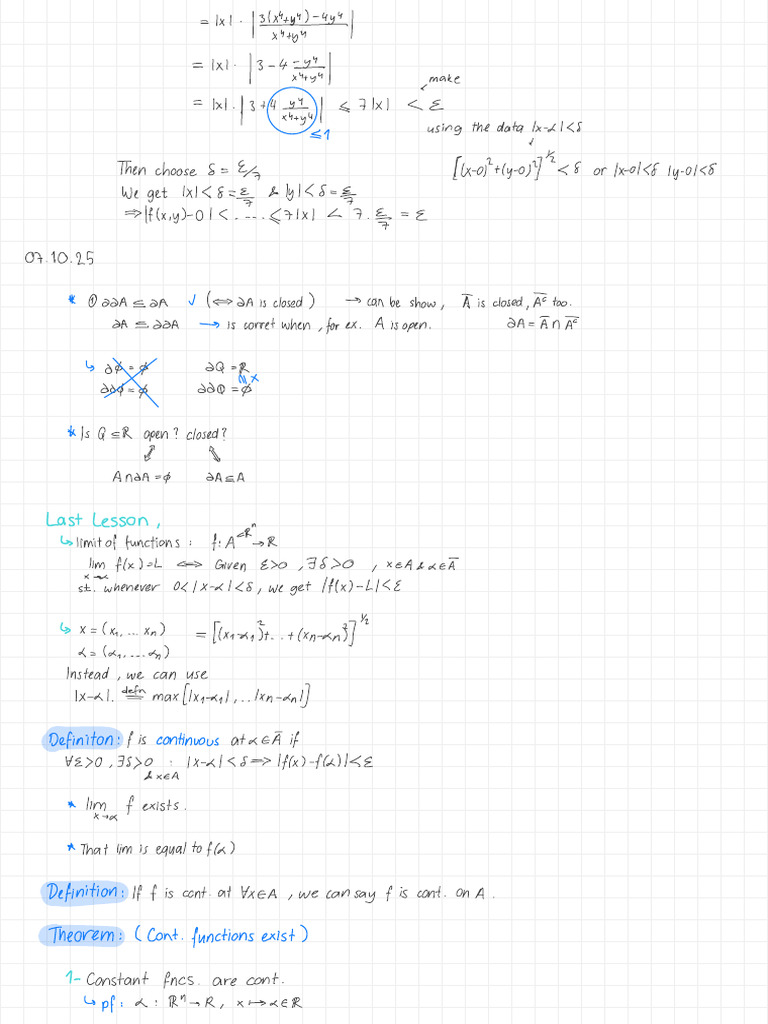 = |x| · | 3(x⁴+y⁴) − 4y⁴ / x⁴+y⁴ |
= |x| · | 3 − 4 −y⁴ / x⁴+y⁴ |
make
= |x| · | 3 + 4 y⁴ / x⁴+y⁴ | ≤ 7|x| < ε
≤1
using the data |x−α|<δ
Then choose δ = ε/7
[(x−0)²+(y−0)²]^1/2 < δ or |x−0|<δ |y−0|<δ
We get |x| < δ = ε/7 & |y| < δ = ε/7
⇒ |f(x,y)−0| < . .... ≤ 7|x| < 7. ε/7 = ε
07.10.25
* ① ∂∂A ⊆ ∂A ✓ (⇔ ∂A is closed) → can be show, A̅ is closed, A̅ᶜ too.
∂A ⊆ ∂∂A → is corret when, for ex. A is open. ∂A = A̅ ∩ A̅ᶜ
↳ ∂∅ = ∅ ∂Q = R
∂∂∅ = ∅ ∂∂Q = ∅
* Is Q ⊆ R open? closed?
A∩∂A = ∅ ∂A ⊆ A
Last Lesson,
↳ limit of functions : f: A^⊂Rⁿ → R
lim x→α f(x) = L ⇔ Given ε>0, ∃δ>0 , x∈A & α∈A̅
st. whenever 0<|x−α|<δ, we get |f(x)−L|<ε
↳ x = (x₁, ... xₙ) = [(x₁−α₁)²+. ..+(xₙ−αₙ)²]^1/2
α = (α₁, ... αₙ)
Instead, we can use
|x−α|. defn = max[|x₁−α₁|, ..|xₙ−αₙ|]
Definiton: f is continuous at α∈A̅ if
∀ε>0, ∃δ>0 : |x−α|<δ ⇒ |f(x)−f(α)|<ε
& x∈A
* lim x→α f exists.
* That lim is equal to f(α)
Definition: If f is cont. at ∀x∈A, we can say f is cont. on A.
Theorem: (Cont. functions exist)
1- Constant fncs. are cont.
↳ pf: α : Rⁿ → R, x ↦ α∈R